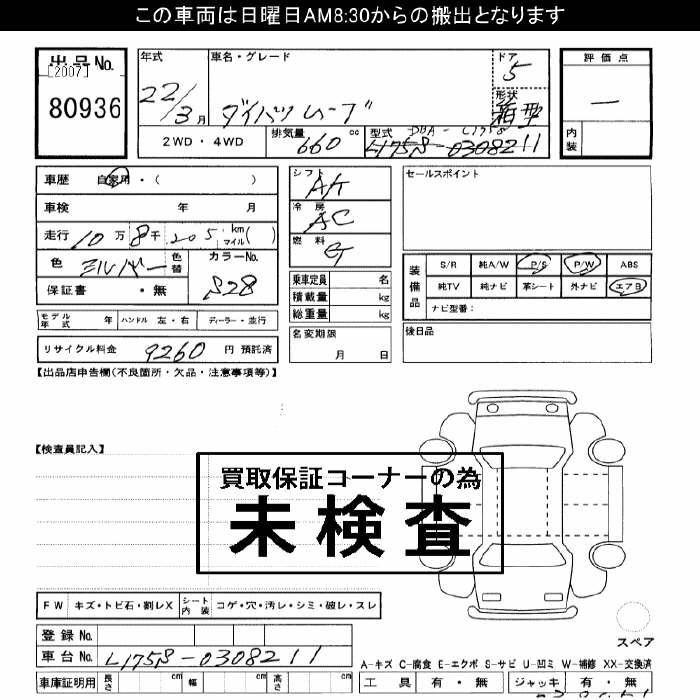 この車両は日曜日AM8:30からの搬出となります
出品No.
[2007]
80936
年式
22/3月
車名・グレード
ダイハツムーブ
ドア
5
形状
箱型
評価点
内装
2WD・4WD
排気量
660 cc
型式
DBA-L175S
L175S-0308211
車歴 自家用・( )
車検 年 月
走行 10万 8千 205 km マイル( )
色 シルバー 色替
カラーNo.
S28
保証書 ・無
シフト
AT
冷房
AC
燃料
G
セールスポイント
装備品
S/R 純A/W P/S P/W ABS
純TV 純ナビ 革シート 外ナビ エアB
ナビ型番:
乗車定員 名
積載量 kg
総重量 kg
モデル年式 年 ハンドル 左・右 ディーラー・並行
名変期限
月 日
後日品
リサイクル料金 9260 円 預託済
【出品店申告欄(不良箇所・欠品・注意事項等)】
【検査員記入】
買取保証コーナーの為
未検査
FW キズ・トビ石・割レX シート内装 コゲ・穴・汚レ・シミ・破レ・スレ
登録No.
車台No. L175S-0308211
スペア
A-キズ C-腐食 E-エクボ S-サビ U-凹ミ W-補修 XX-交換済
車庫証明用 長さ cm 幅 cm 高さ cm
工具 有・無 ジャッキ 有・無